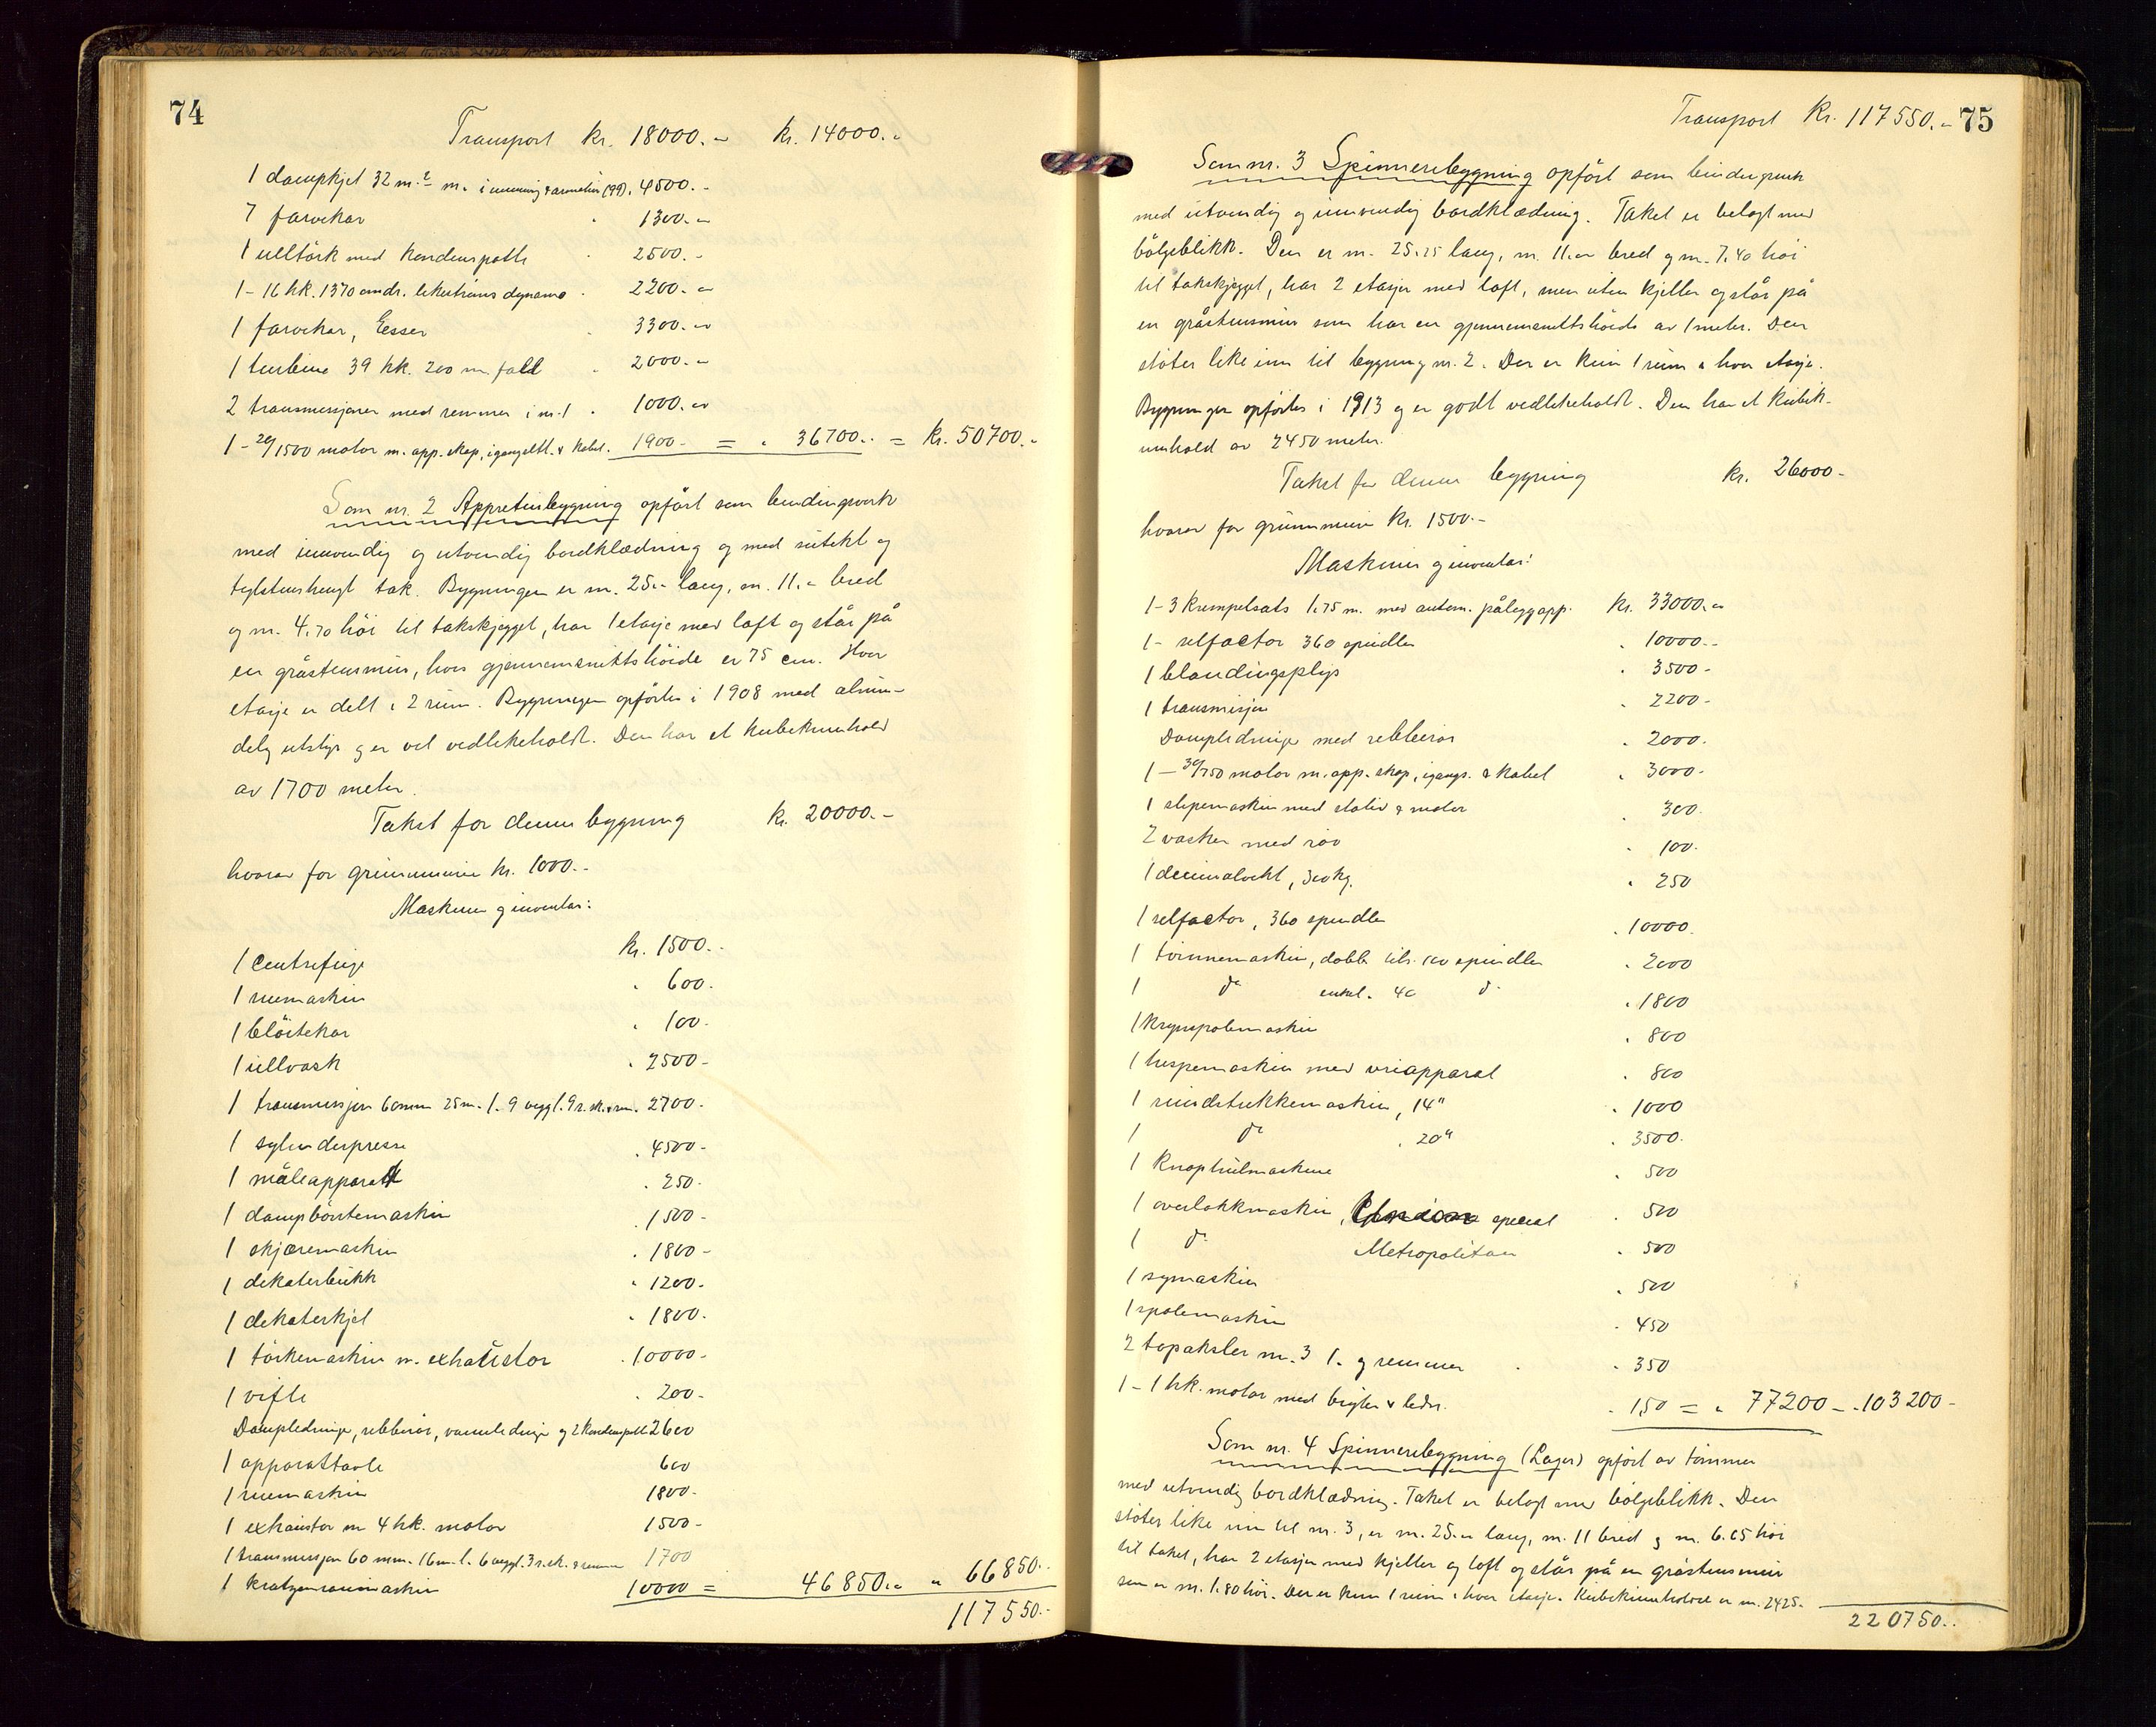 74
Transport kr. 18000.- kr. 14000.-
1 dampkjel 32 m.² m. innmuring & armatur (99). 4500.-
7 farvekar 1300.-
1 ulltörk med kondenspotte 2500.-
1 - 16 hk. 1370 omdr. likeströms dynamo 2200.-
1 farvekar, Esser 3300.-
1 turbine 39 hk. 200 m. fald 2000.-
2 transmissjoner med remmer i nr. 1 1000.-
1 - 20/1500 motor m. app. skap, igangsett. & kabel. 1900.- = " 36700.- = kr. 50700.-
Som nr. 2 Appreturbygning opfört som bindingverk
med innvendig og utvendig bordklædning og med sutekt og
teglstenhengt tak. Bygningen er m. 25.- lang, m. 11.- bred
og m. 4.70 höi til takskjegget, har 1 etasje med loft og står på
en gråstensmur, hvis gjennemsnittshöide er 75 cm. Hver
etasje er delt i 2 rum. Bygningen opförtes i 1908 med alminn-
delig utstyr og er vel vedlikeholdt. Den har et kubikkinnhold
av 1700 meter.
Takst for denne bygning kr. 20000.-
hvorav for grunnmuren kr. 1000.-
Maskiner og inventar:
1 centrifuge kr. 1500.-
1 ruemaskin " 600.-
1 blöitekar " 100.-
1 ullvask " 2500.-
1 transmissjon 60mm 25m. l. 9 veggl. 9 r.sk. & rem. 2700.-
1 sylinderpresse " 4500.-
1 måleapparat " 250.-
1 dampbörstemaskin " 1500.-
1 skjæremaskin " 1800.-
1 dekaterbukk " 1200.-
1 dekaterkjel " 1800.-
1 törkemaskin m. exhaustor " 10000.-
1 vifte " 200.-
Dampledninger, ribberör, vannledninger og 2 kondenspott. 2600
1 apparattavle 600
1 ruemaskin 1800.-
1 exhaustor m 4 hk. motor 1500.-
1 transmissjon 60 mm. 16 m. l. 6 veggl. 3 r.sk. & remmer 1700
1 kratzenraumaskin 10000 = 46850.- " 66850.-
117550.-
Transport Kr. 117550.- 75
Som nr. 3 Spinneribygning opfört som bindingverk
med utvendig og innvendig bordklædning. Taket er belagt med
bölgeblikk. Den er m. 25.25 lang, m. 11.- bred og m. 7.40 höi
til takskjegget, har 2 etasjer med loft, men uten kjeller og står på
en gråstensmur som har en gjennemsnittshöide av 1 meter. Den
stöter like inn til bygning nr. 2. Der er kun 1 rum i hver etasje.
Bygningen opförtes i 1913 og er godt vedlikeholdt. Den har et kubik-
innhold av 2450 meter.
Takst for denne bygning kr. 26000.-
hvorav for grunnmuren kr. 1500.-
Maskiner og inventar:
1 - 3 krempelsats 1.75 m. med autom. påleggapp. kr. 33000.-
1 - selfactor 360 spindler " 10000.-
1 blandingsplys " 3500.-
1 transmisjon " 2200.-
Dampledninger med ribberör " 2000.-
1 - 30/750 motor m. app. skap, igangs. & kabel " 3000.-
1 slipemaskin med stativ & motor " 300.
2 vasker med rör " 100.
1 decimalvekt, 300kg. " 250
1 selfactor, 360 spindler " 10000.
1 tvinnemaskin, dobb. 100 spindler " 2000
1 do enkel. 40 do " 1800
1 krysspolemaskin " 800
1 hespemaskin med vriapparat " 800
1 rundstrikkemaskin, 14" " 1000
1 do " 20" " 3500.
1 knaphulmaskine " 500
1 overlokkmaskin, Union special " 500
1 do Metropolitan " 500
1 symaskin " 500
1 spolemaskin " 450
2 topaksler m. 3 l. og remmer " 350
1 - 1 hk. motor med bryter & ledn. " 150 = " 77200 - " 103200 -
Som nr. 4 Spinneribygning (Lager) opfört av tömmer
med utvendig bordklædning. Taket er belagt med bölgeblikk. Den
stöter like inn til nr. 3, er m. 25.- lang, m. 11 bred og m. 6.65 höi
til taket, har 2 etasjer med kjeller og loft og står på en gråstensmur
som er m. 1.80 höi. Der er kun 1 rum i hver etasje. Kubikkinnholdet er m. 2425.-
220750.-